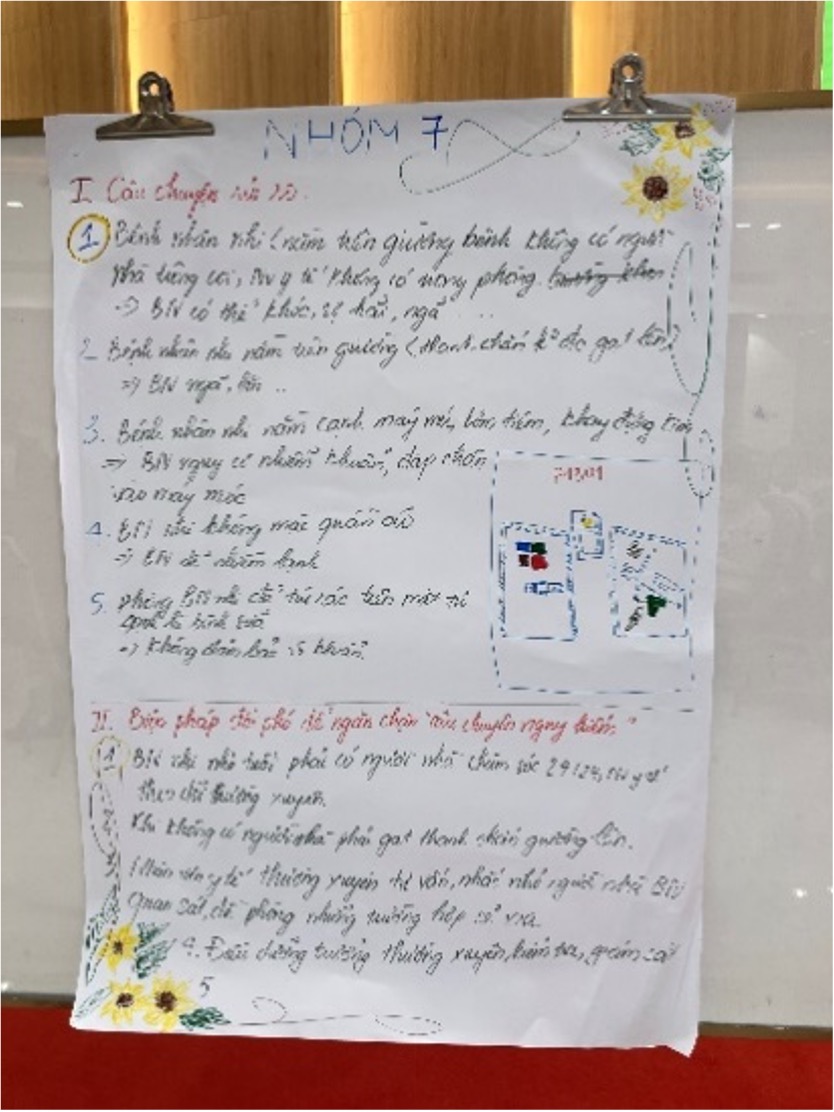 NHÓM 7
I Câu chuyện rủi ro.
1 Bệnh nhân nhi (nằm trên giường bệnh không có người
nhà trông coi, NV y tế không có trong phòng.
=> BN có thể khóc, sợ hãi, ngã ...
2 Bệnh nhân nhi nằm trên giường (thanh chắn k° đc gạt lên)
=> BN ngã, ..
3. Bệnh nhân nhi nằm cạnh máy móc, bơm tiêm, khay đựng
=> BN nguy cơ nhiễm khuẩn, đạp chân
vào máy móc
4. BN nhi không mặc quần áo
=> BN dễ nhiễm lạnh
5. phòng BN nhi để túi rác trên mặt tủ
cạnh là bình sữa
=> Không đảm bảo khuẩn.
II. Biện pháp đối phó để ngăn chặn "câu chuyện nguy hiểm"
1 BN nhi nhỏ tuổi phải có người nhà chăm sóc 24/24, NV y tế
theo dõi thường xuyên.
Khi không có người nhà phải gạt thanh chắn giường lên.
Nhân viên y tế thường xuyên tư vấn, nhắc nhở người nhà BN
quan sát, đề phòng những trường hợp sẽ xra.
4. Điều dưỡng trưởng thường xuyên, kiểm tra, giám sát
5